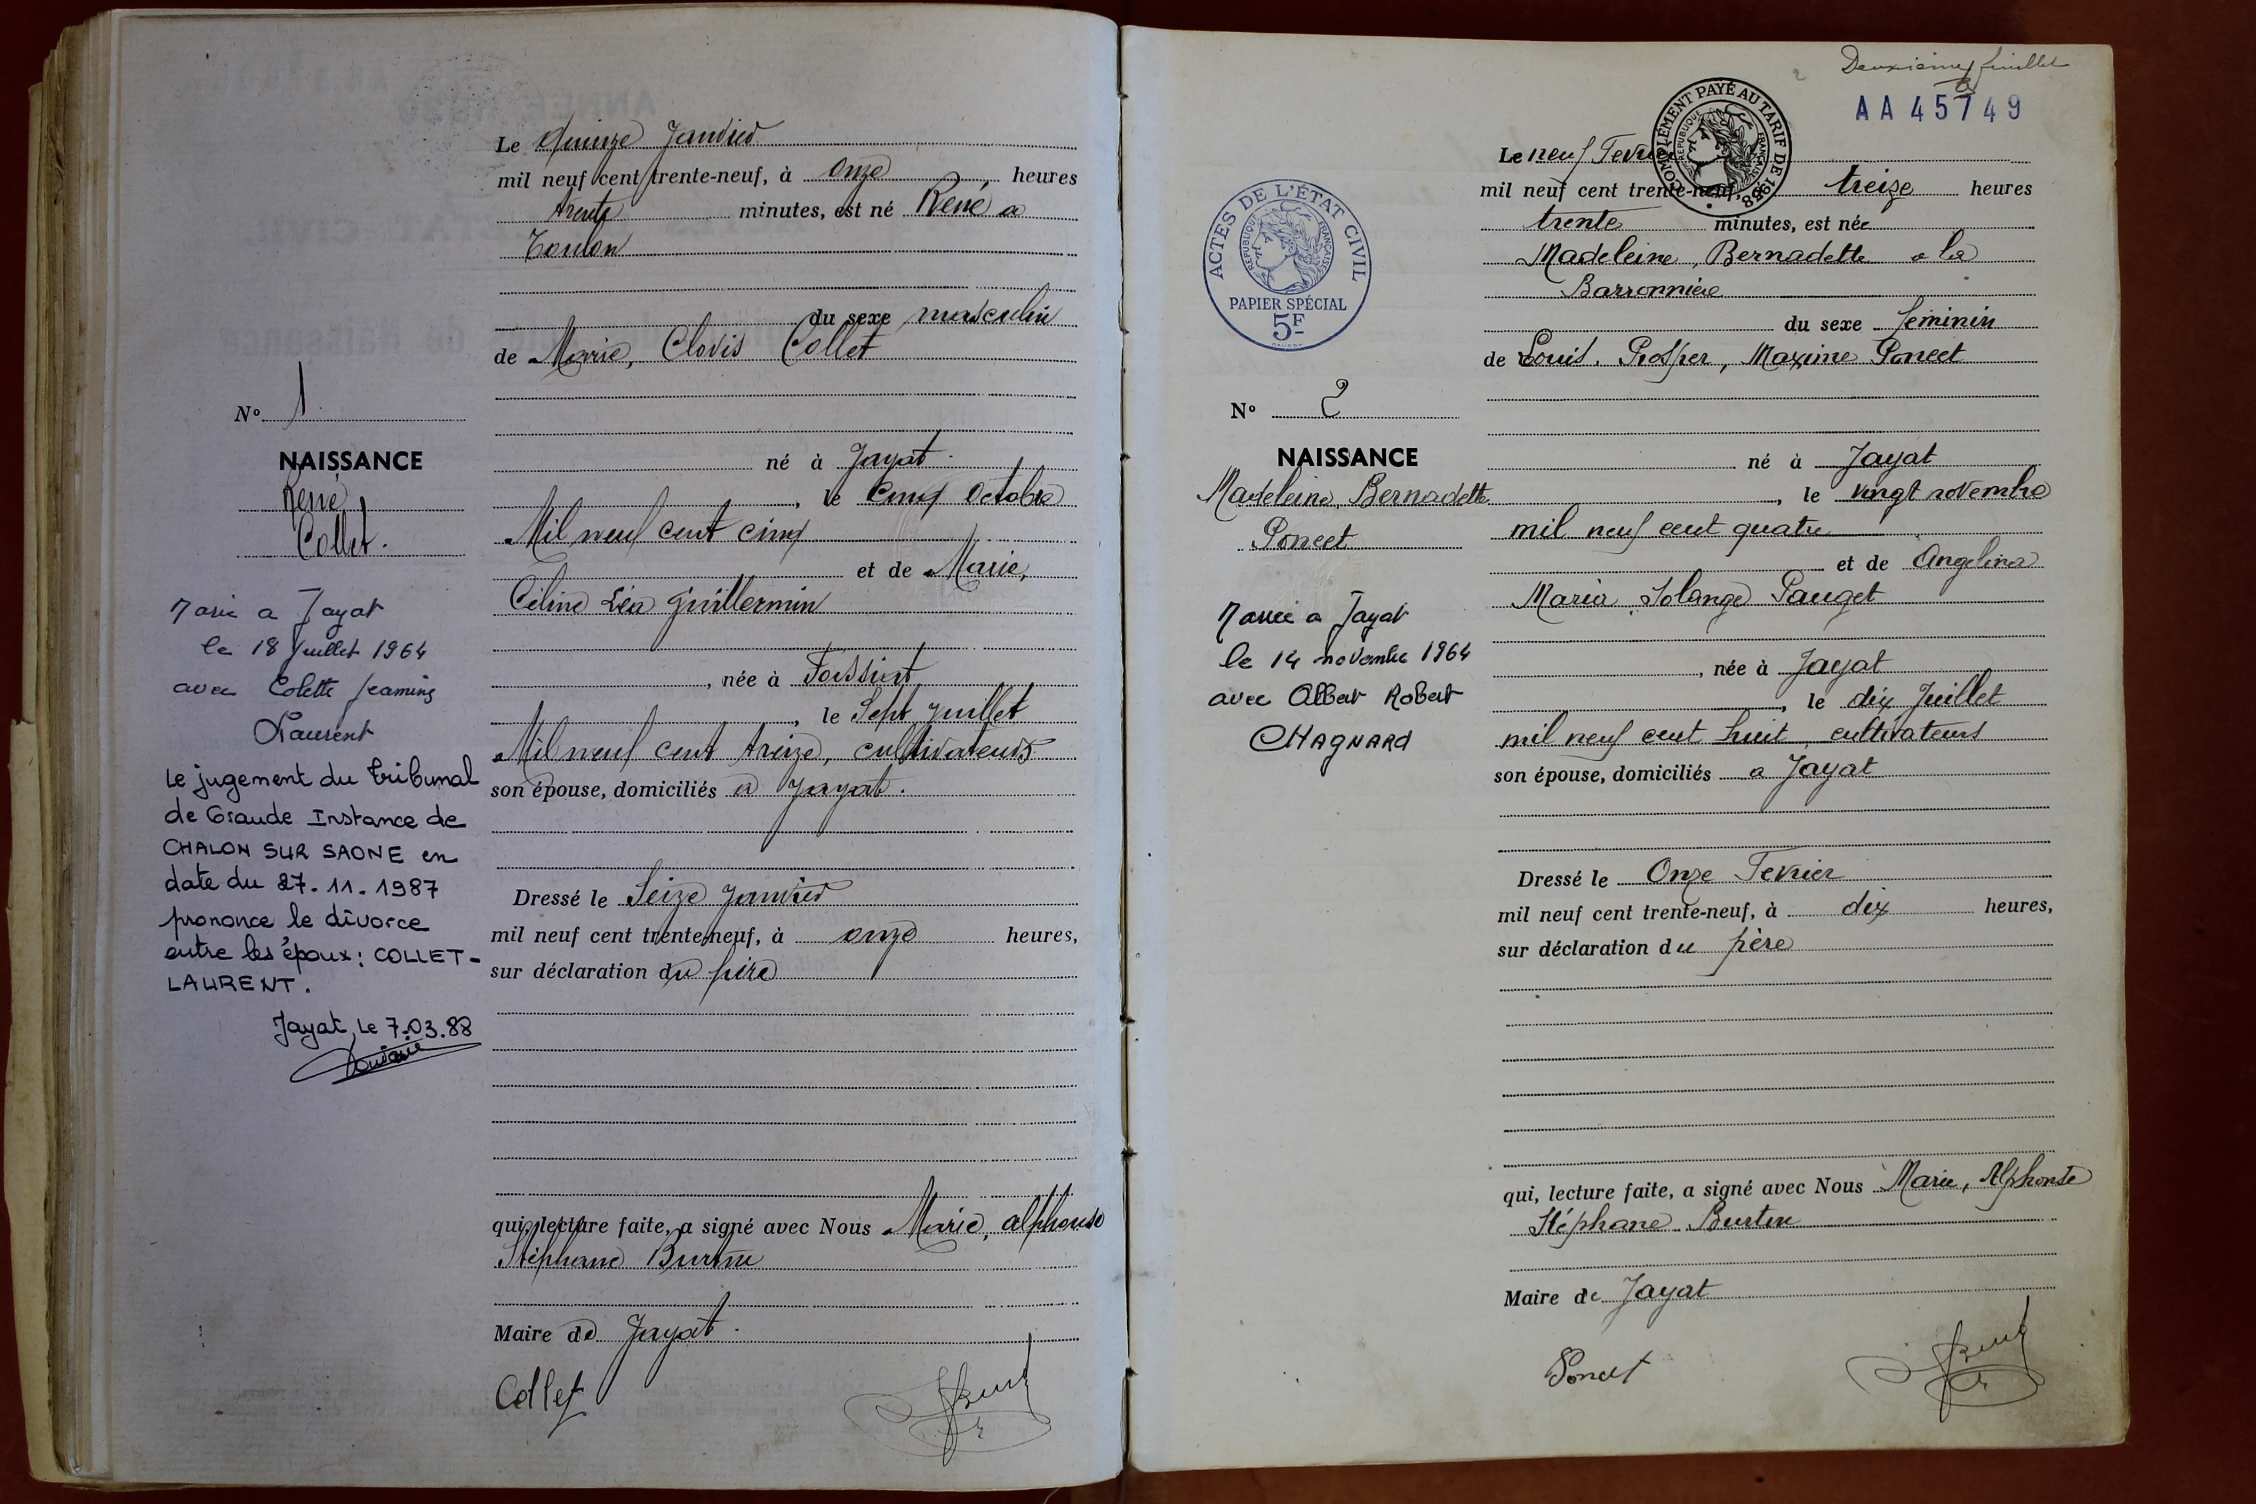 Le Quinze Janvier
mil neuf cent trente-neuf, à onze heures
trente minutes, est né René a
Toulon
du sexe masculin
de Marie, Clovis Collet
N° 1
NAISSANCE
René
Collet.
né à Jayat.
, le cinq octobre
Mil neuf cent cinq
et de Marie,
Céline Léa Guillermin
, née à Foissiat
, le Sept juillet
Mil neuf cent treize, cultivateurs
son épouse, domiciliés a Jayat.
Marié a Jayat
le 18 juillet 1964
avec Colette Jeanning
Laurent
Le jugement du tribunal
de Grande Instance de
CHALON SUR SAONE en
date du 27.11.1987
prononce le divorce
entre les époux: COLLET-
LAURENT.
Jayat, le 7.03.88
Dressé le Seize Janvier
mil neuf cent trente-neuf, à onze heures,
sur déclaration du père
qui, lecture faite, a signé avec Nous Marie, alphonse
Stéphane Burtin
Maire de Jayat.
Collet
Deuxième feuillet
AA 45749
COMPLÉMENT PAYÉ AU TARIF DE 1958
RÉPUBLIQUE FRANÇAISE
ACTES DE L'ÉTAT CIVIL
RÉPUBLIQUE FRANÇAISE
PAPIER SPÉCIAL
5F
Le neuf Fevrier
mil neuf cent trente-neuf, à treize heures
trente minutes, est née
Madeleine, Bernadette a la
Barronnière
du sexe féminin
de Louis, Prosper, Maxime Poncet
N° 2
NAISSANCE
Madeleine, Bernadette
Poncet
né à Jayat
, le vingt novembre
mil neuf cent quatre
et de Angelina
Maria Solange Pauget
, née à Jayat
, le dix Juillet
mil neuf cent huit, cultivateurs
son épouse, domiciliés a Jayat
Mariée a Jayat
le 14 novembre 1964
avec Albert Robert
CHAGNARD
Dressé le Onze Fevrier
mil neuf cent trente-neuf, à dix heures,
sur déclaration du père
qui, lecture faite, a signé avec Nous Marie, Alphonse
Stéphane Burtin
Maire de Jayat
Poncet